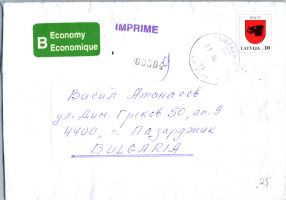 B Economy
Economique
IMPRIME
BALVI
LATVIJA 10
Васил Атанасов
ул. Дим. Греков 50, ап. 9
4400, г. Пазарджик
BULGARIA
25